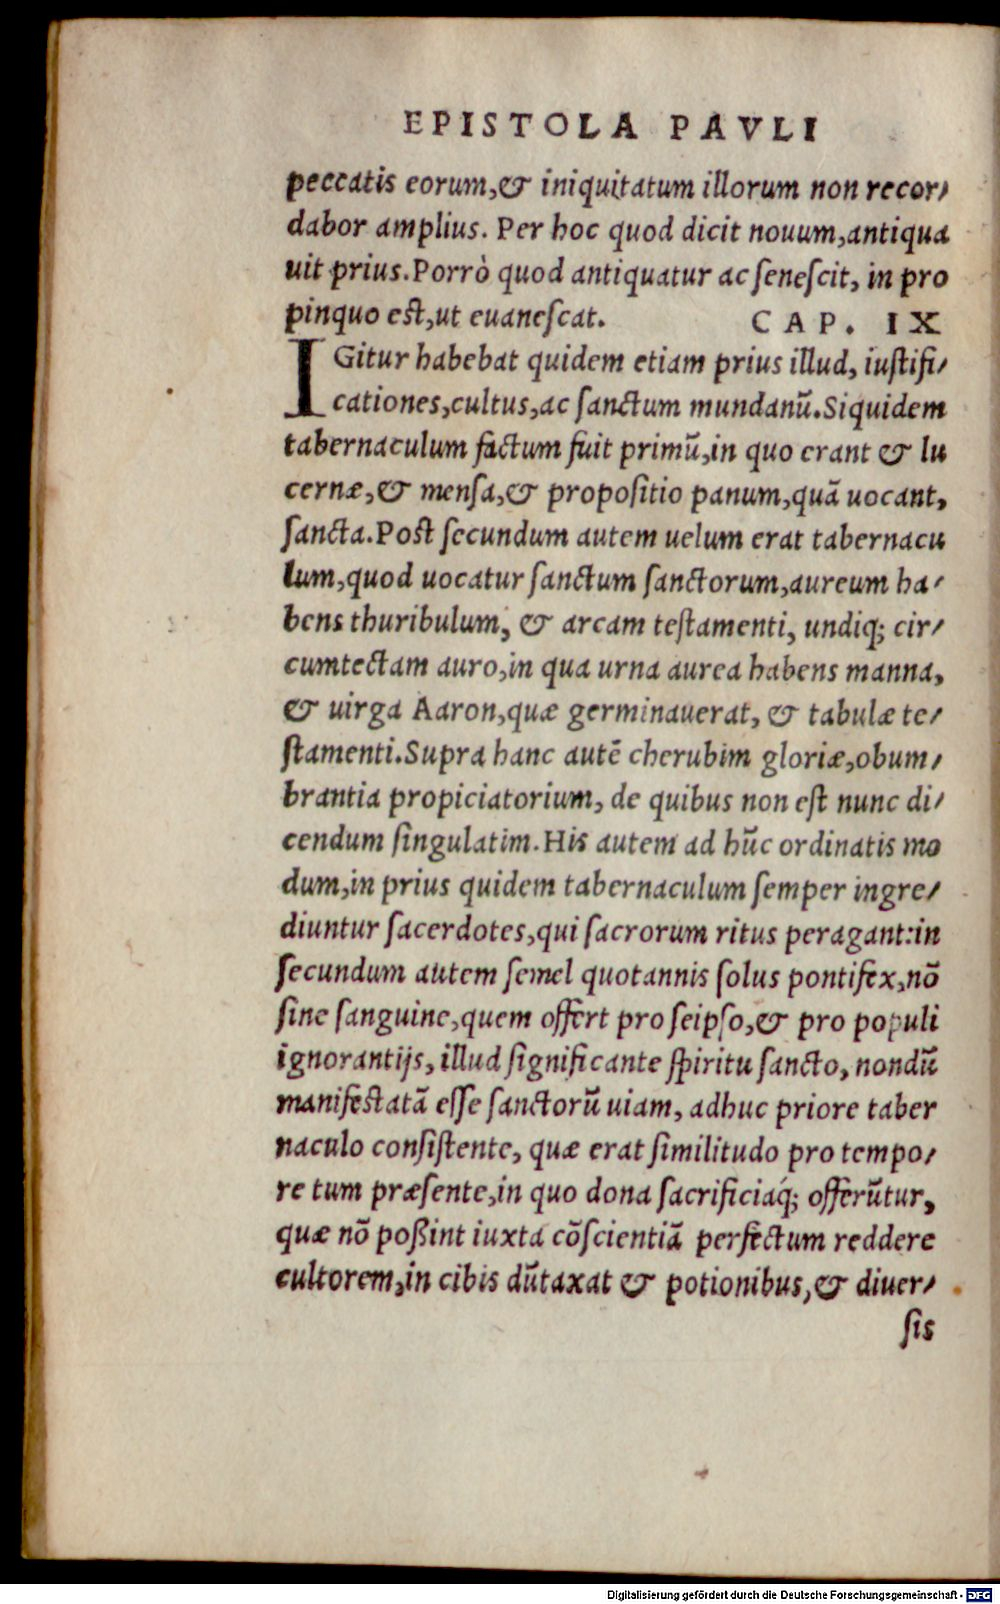 EPISTOLA PAVLI
peccatis eorum,& iniquitatum illorum non recor/
dabor amplius. Per hoc quod dicit nouum,antiqua
uit prius.Porrò quod antiquatur ac ſeneſcit, in pro
pinquo eſt,ut euaneſcat. CAP. IX
IGitur habebat quidem etiam prius illud, iuſtifi/
cationes,cultus,ac ſanctum mundanū.Siquidem
tabernaculum factum fuit primū,in quo erant & lu
cernæ,& menſa,& propoſitio panum,quā uocant,
ſancta.Poſt ſecundum autem uelum erat tabernacu
lum,quod uocatur ſanctum ſanctorum,aureum ha/
bens thuribulum, & arcam teſtamenti, undiq; cir/
cumtectam auro,in qua urna aurea habens manna,
& uirga Aaron,quæ germinauerat, & tabulæ te/
ſtamenti.Supra hanc autē cherubim gloriæ,obum/
brantia propiciatorium, de quibus non eſt nunc di/
cendum ſingulatim.His autem ad hūc ordinatis mo
dum,in prius quidem tabernaculum ſemper ingre/
diuntur ſacerdotes,qui ſacrorum ritus peragant:in
ſecundum autem ſemel quotannis ſolus pontifex,nō
ſine ſanguine,quem offert pro ſeipſo,& pro populi
ignorantijs, illud ſignificante ſpiritu ſancto, nondū
manifeſtatā eſſe ſanctorū uiam, adhuc priore taber
naculo conſiſtente, quæ erat ſimilitudo pro tempo/
re tum præſente,in quo dona ſacrificiaq́; offerūtur,
quæ nō poßint iuxta cōſcientiā perfectum reddere
cultorem,in cibis dūtaxat & potionibus,& diuer/
ſis
Digitalisierung gefördert durch die Deutsche Forschungsgemeinschaft - DFG